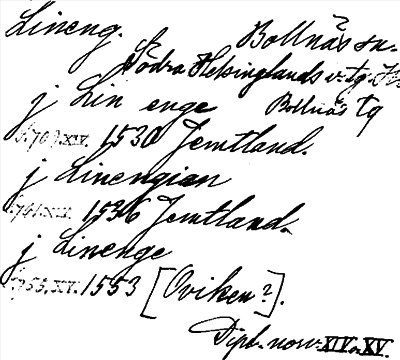 Lineng. Bollnäs sn.
Södra Helsinglands v. tg.
j Lin enge Bollnäs tg
s.709.XIV. 1530 Jemtland.
j Linengian
s.741.XIV. 1536 Jemtland.
j Linenge
1553 [Oviken?].
Dipl. norv. XIV o. XV.